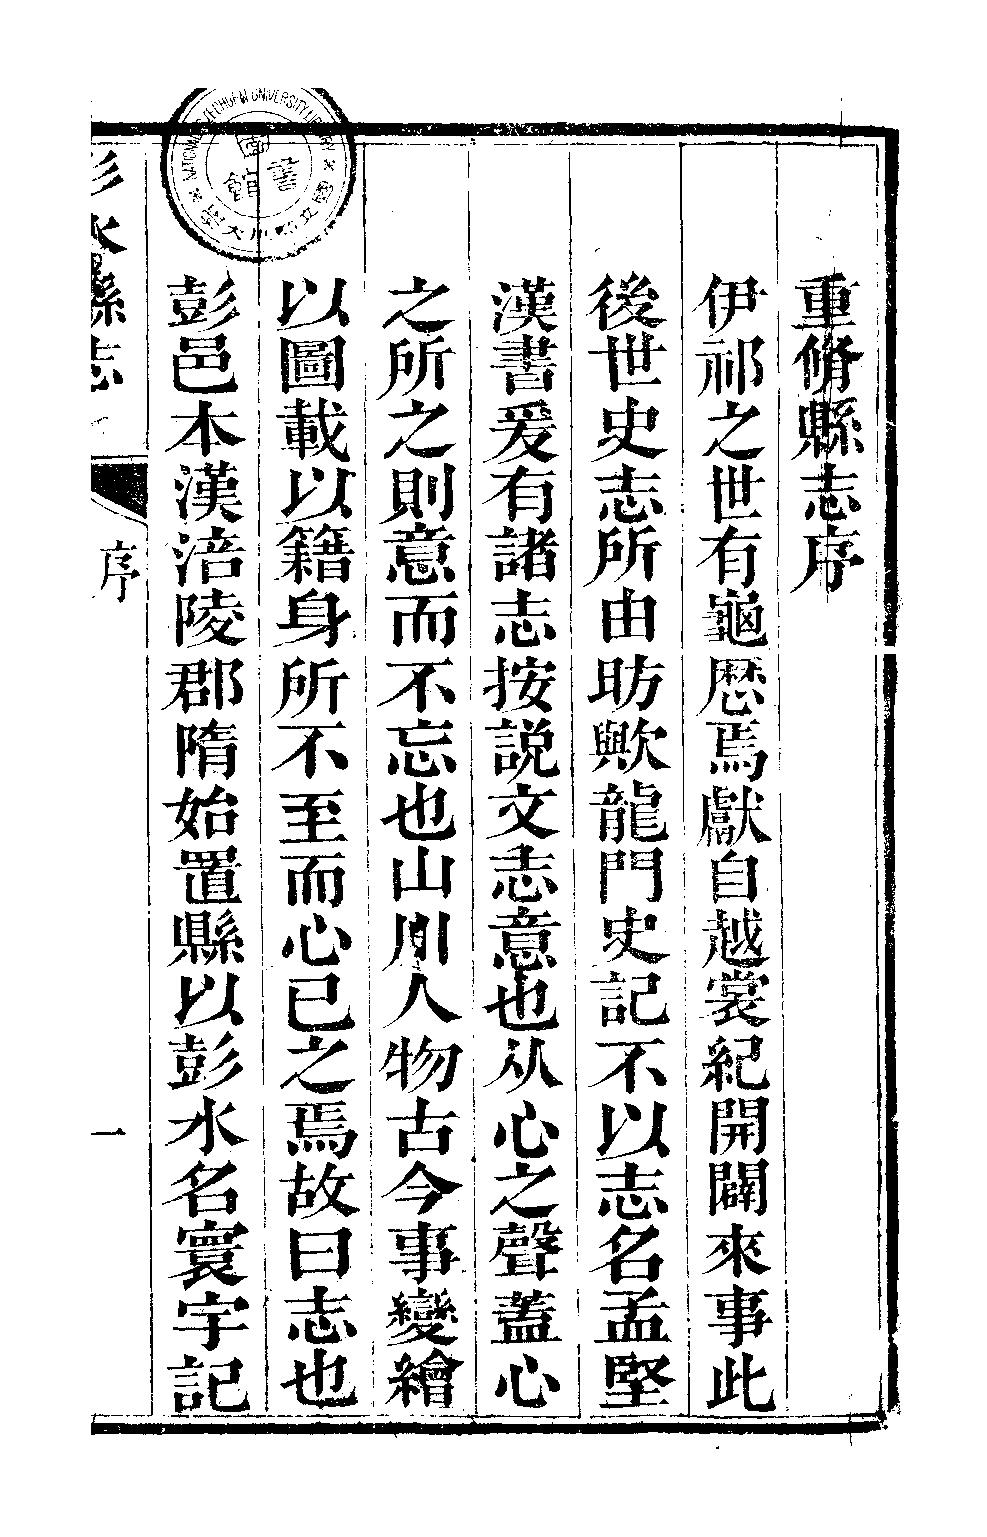 重脩縣志序
伊祁之世有龜厯焉獻自越裳紀開闢來事此
後世史志所由昉歟龍門史記不以志名孟堅
漢書爰有諸志按説文志意也从心之聲蓋心
之所之則意而不忘也山川人物古今事變繪
以圖載以籍身所不至而心已之焉故曰志也
彭邑本漢涪陵郡隋始置縣以彭水名寰宇記
彭水縣志
序
一
NATIONAL SZECHUEN UNIVERSITY LIBRARY
國立四川大學
圖書館